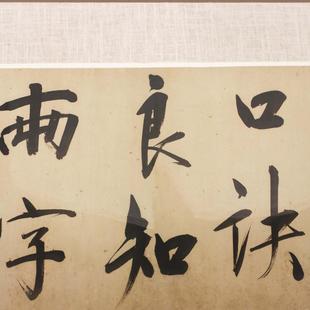 口訣
良知
兩字